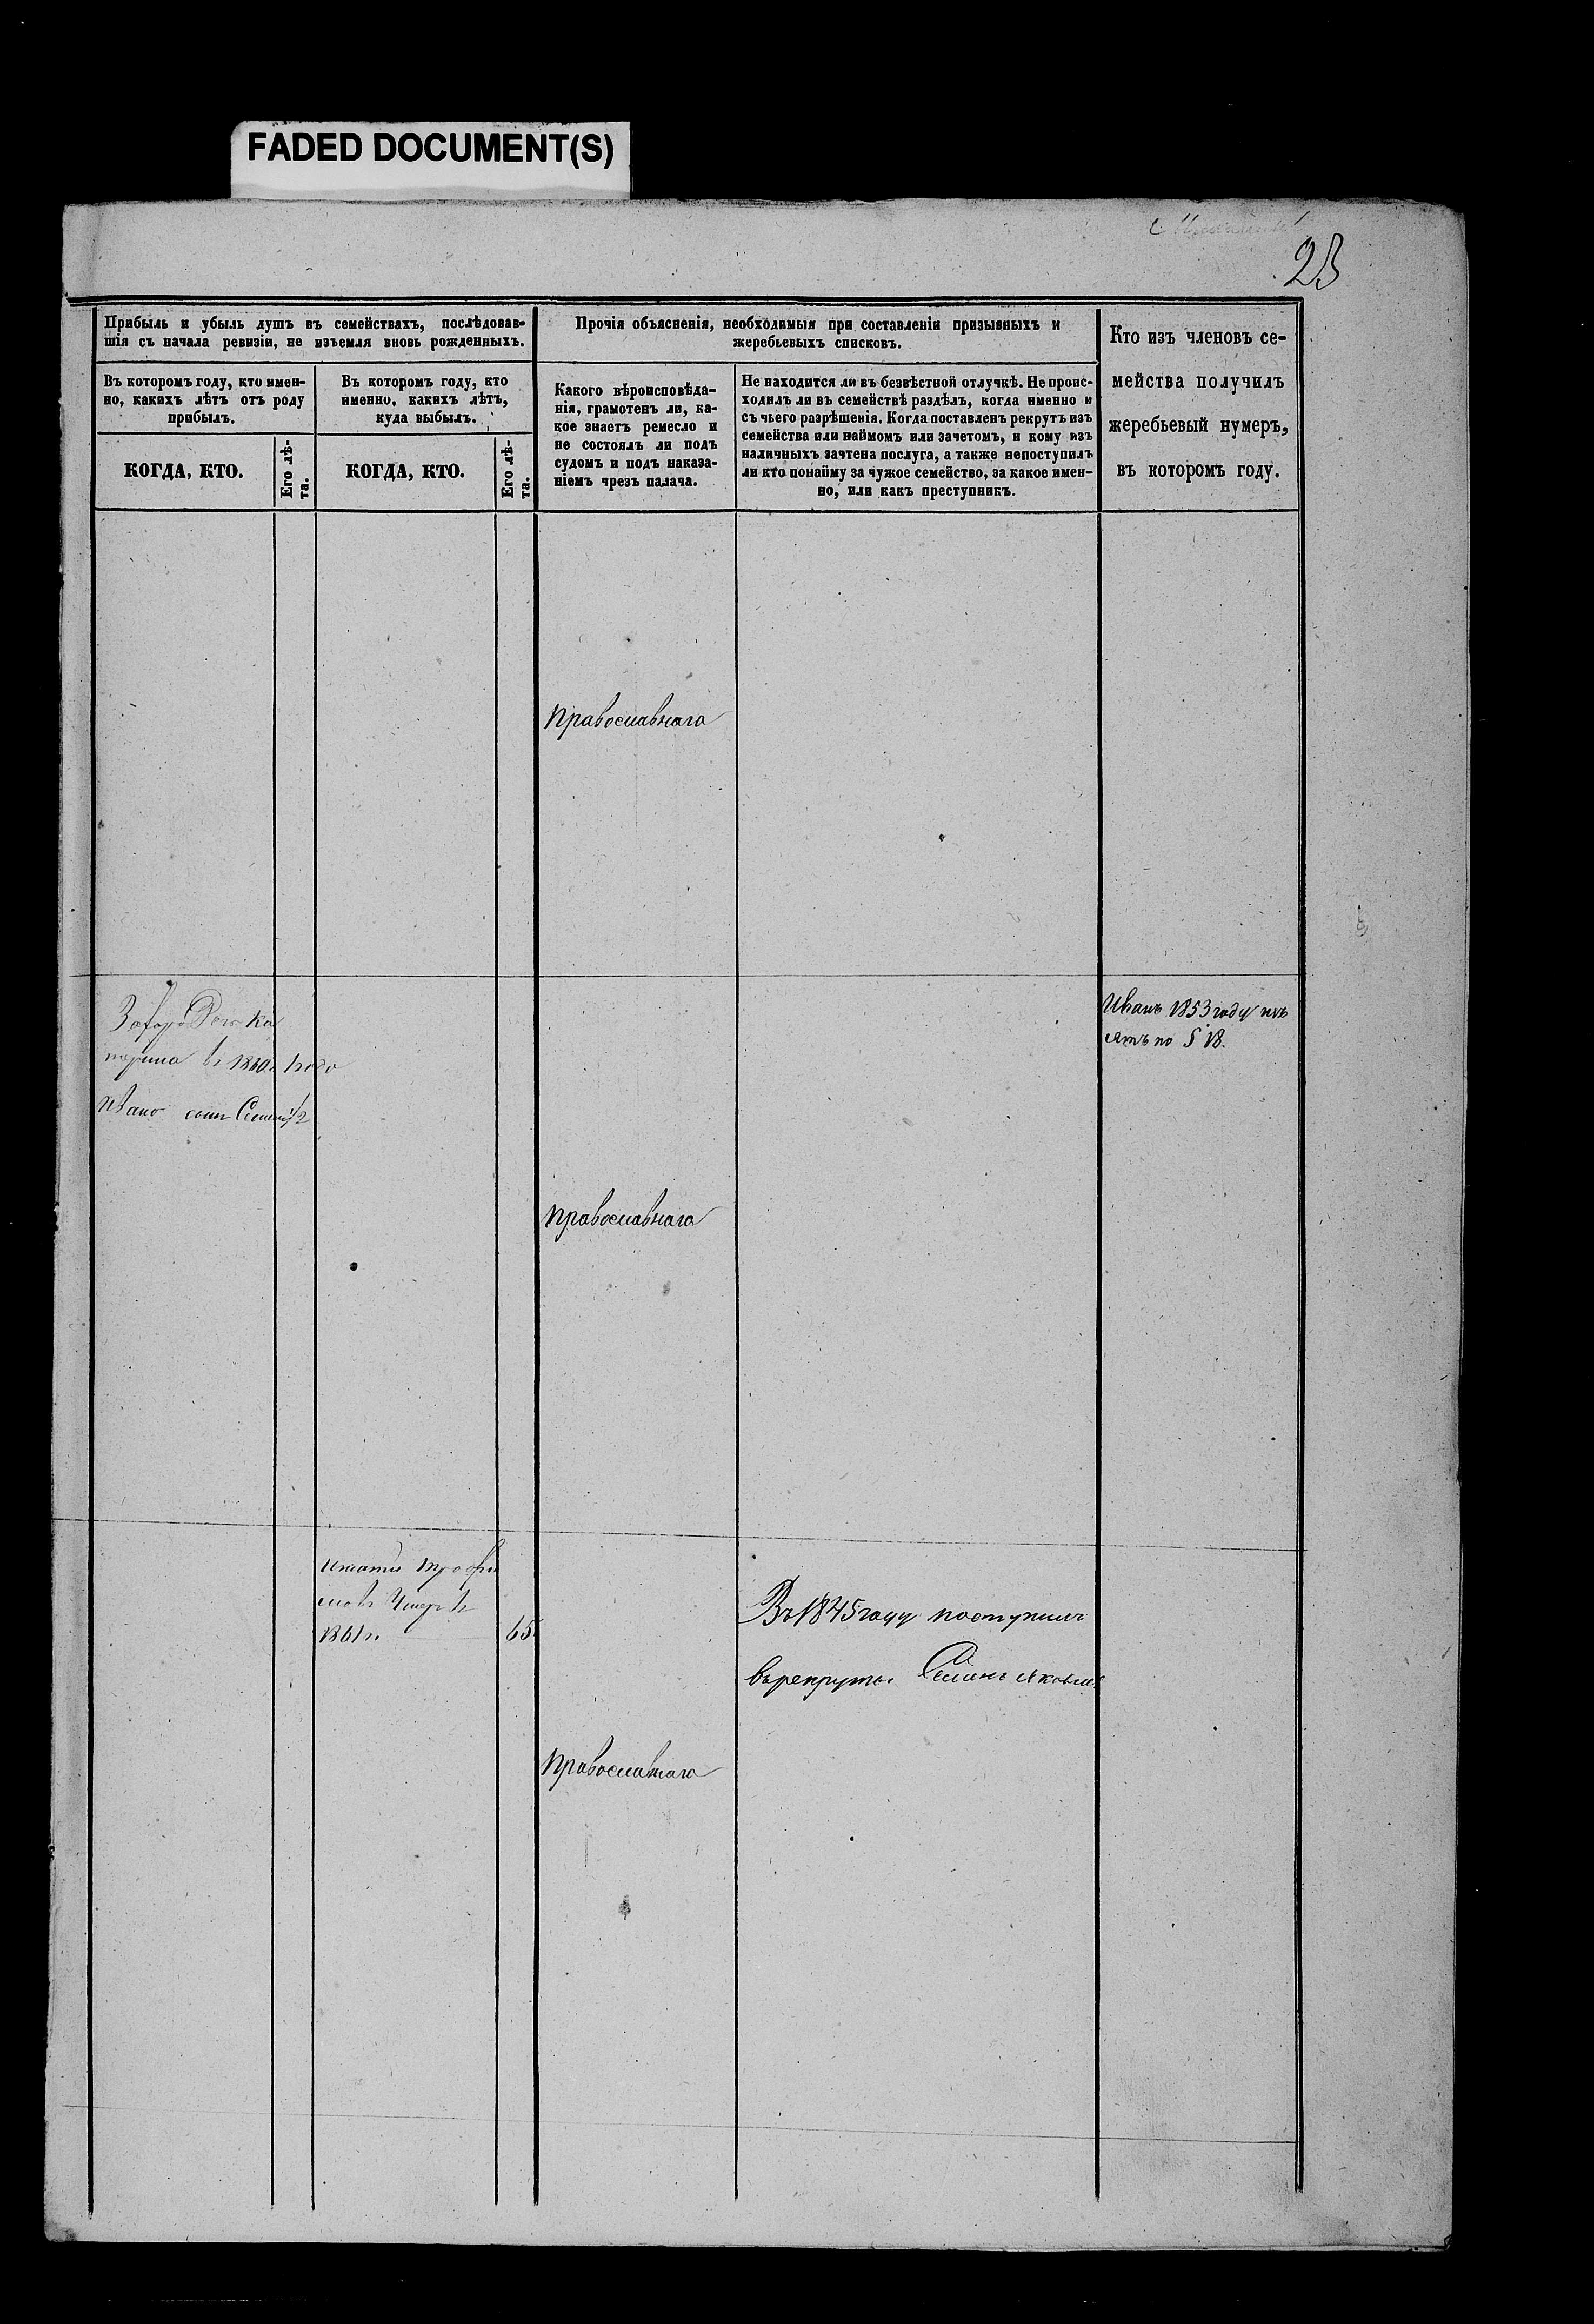 FADED DOCUMENT(S)
23
Прибыль и убыль душъ въ семействахъ, послѣдовав-
шія съ начала ревизіи, не изъемля вновь рожденныхъ.
Въ которомъ году, кто имен-
но, какихъ лѣтъ отъ роду
прибылъ.
КОГДА, КТО.
Его лѣ-
та.
Въ которомъ году, кто
именно, какихъ лѣтъ,
куда выбылъ.
КОГДА, КТО.
Его лѣ-
та.
Прочія объясненія, необходимыя при составленіи призывныхъ и
жеребьевыхъ списковъ.
Какого вѣроисповѣда-
нія, грамотенъ ли, ка-
кое знаетъ ремесло и
не состоялъ ли подъ
судомъ и подъ наказа-
ніемъ чрезъ палача.
Не находится ли въ безвѣстной отлучкѣ. Не проис-
ходилъ ли въ семействѣ раздѣлъ, когда именно и
съ чьего разрѣшенія. Когда поставленъ рекрутъ изъ
семейства или наймомъ или зачетомъ, и кому изъ
наличныхъ зачтена послуга, а также непоступилъ
ли кто понайму за чужое семейство, за какое имен-
но, или какъ преступникъ.
Кто изъ членовъ се-
мейства получилъ
жеребьевый нумеръ,
въ которомъ году.
Православнаго
Иванъ 1853 году изъ
ятъ по § 18.
терина въ 1860
сынъ Семенъ 1/2
Православнаго
Трофи
мовъ Умеръ въ
1861 г. 65
Въ 1845 году поступилъ
въ рекруты Семенъ Яковлев
Православнаго